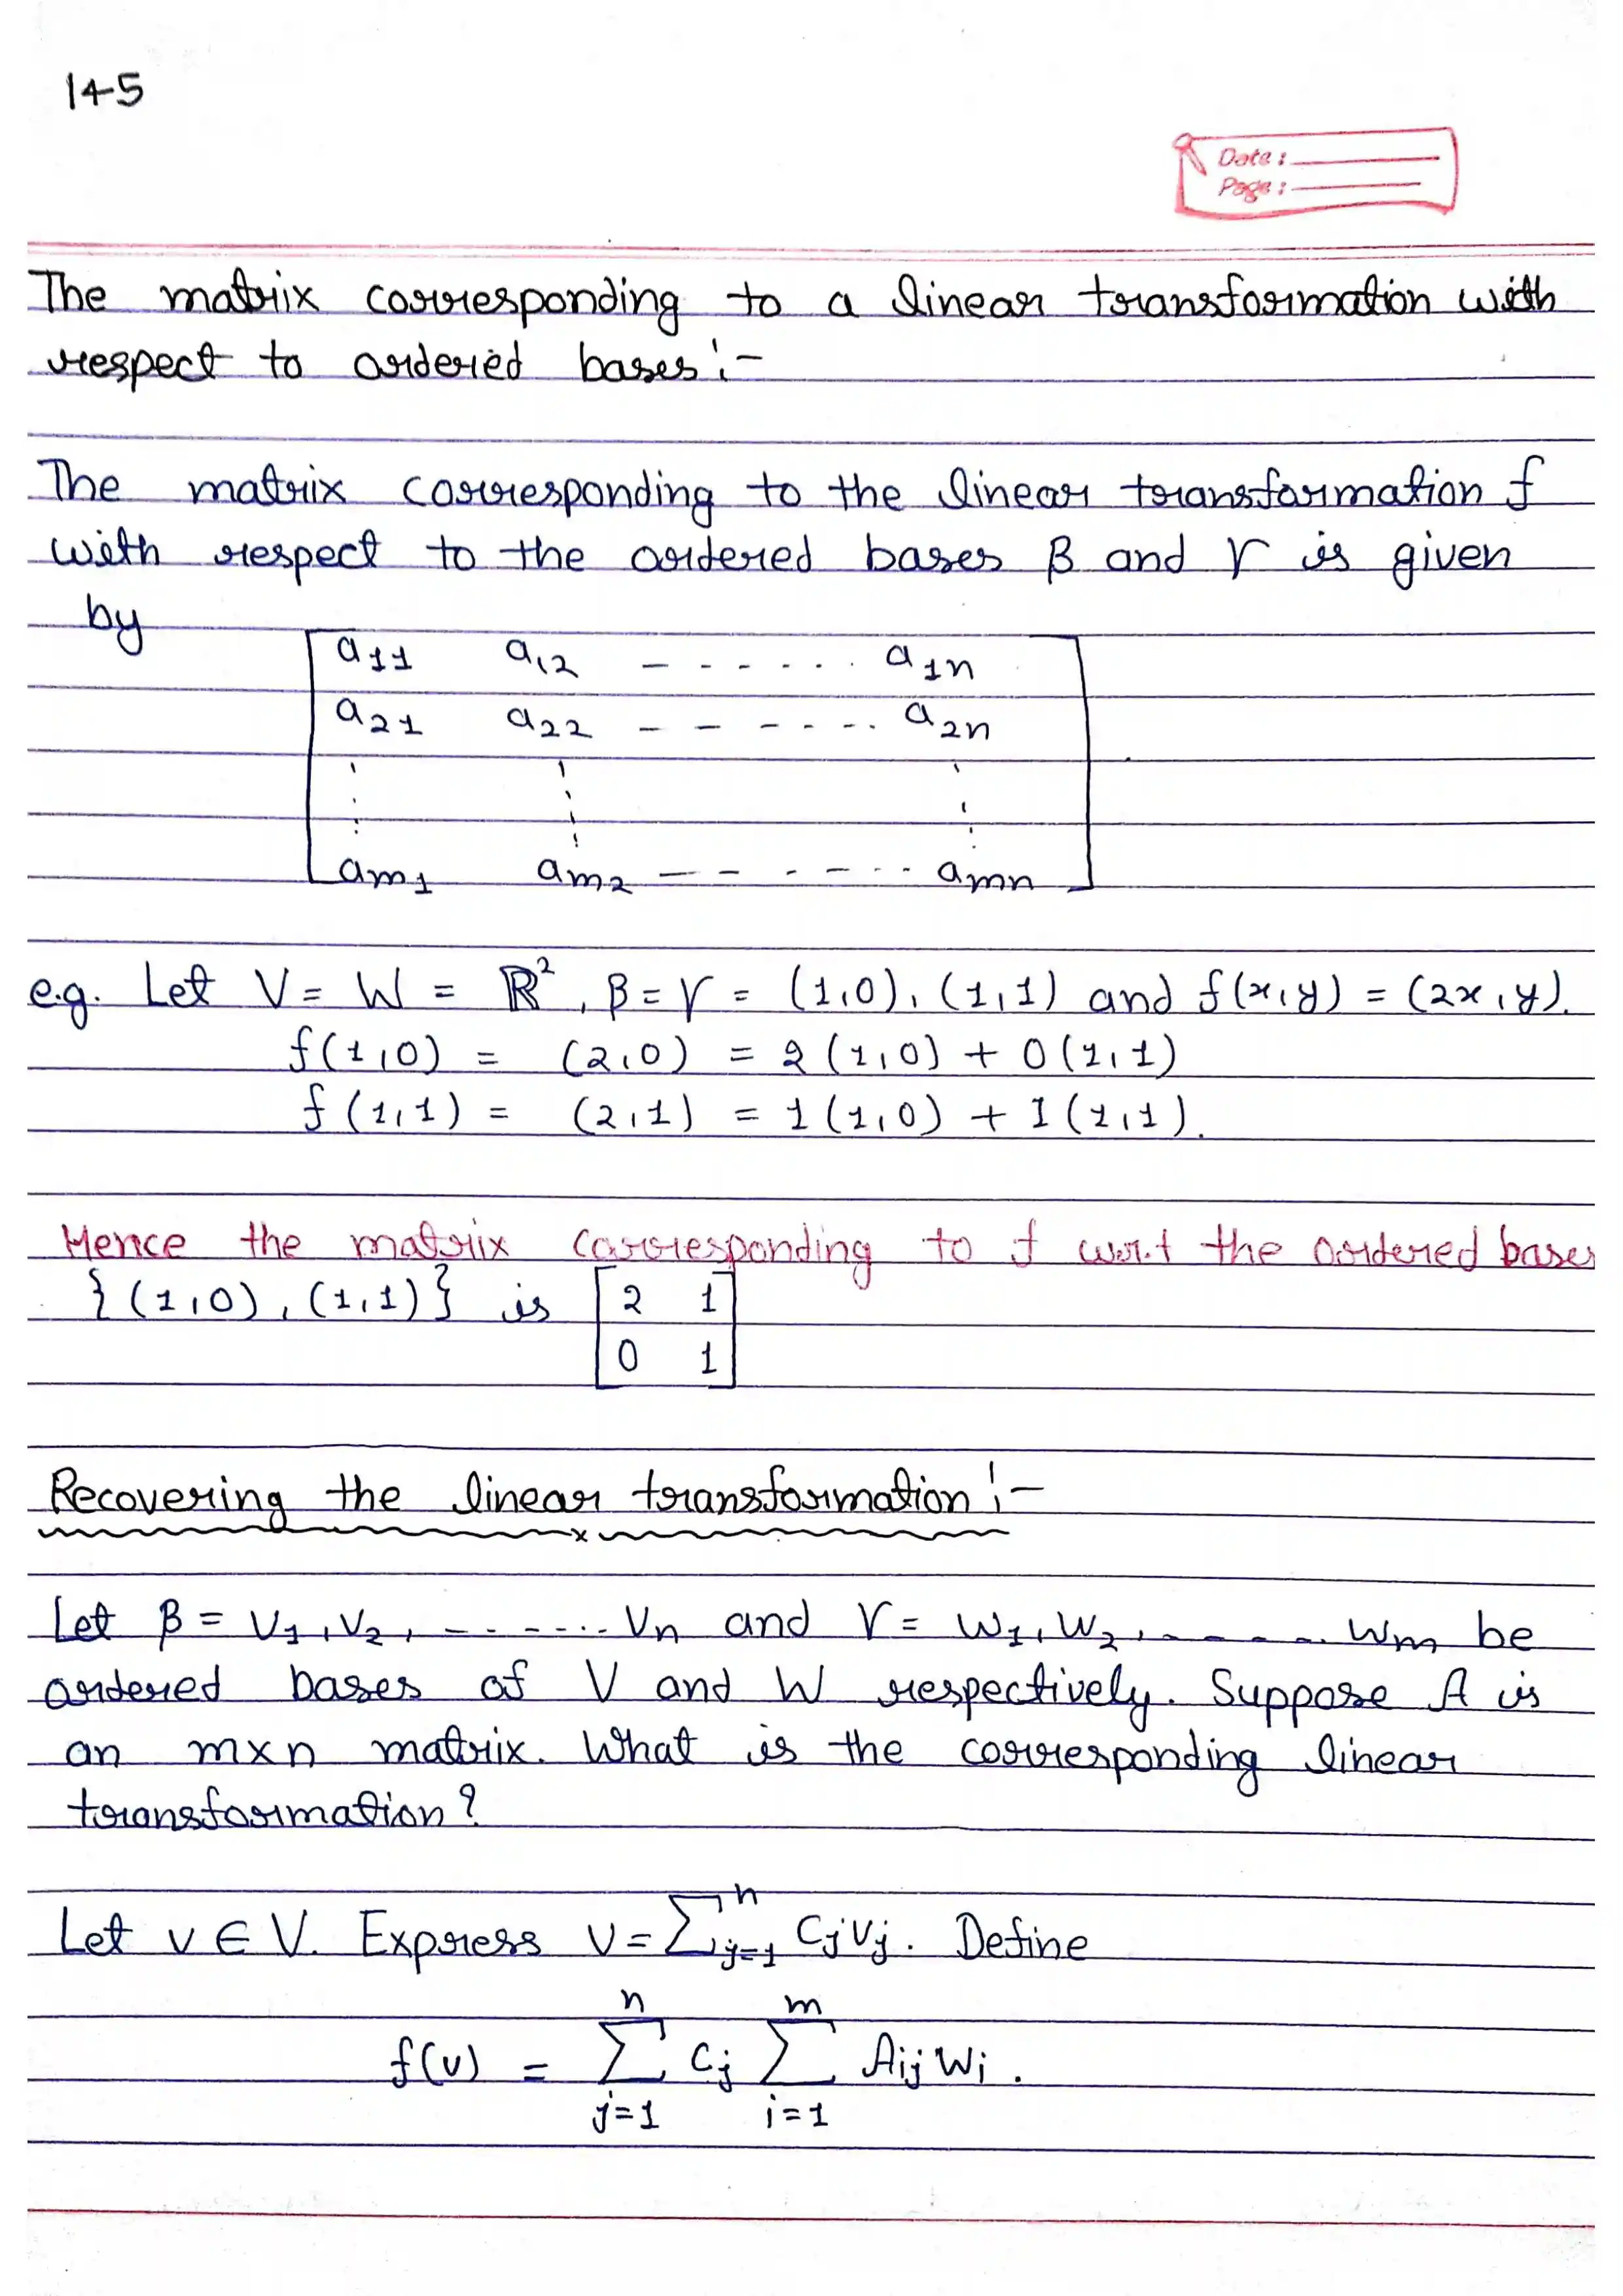 145
Date:
Page:
The matrix corresponding to a linear transformation with
respect to ordered bases :-
The matrix corresponding to the linear transformation f
with respect to the ordered bases β and γ is given
by
a11 a12 - - - - - - a1n
a21 a22 - - - - - - a2n
am1 am2 - - - - - - amn
e.g. Let V = W = ℝ², β = γ = (1,0), (1,1) and f(x,y) = (2x,y).
f(1,0) = (2,0) = 2(1,0) + 0(1,1)
f(1,1) = (2,1) = 1(1,0) + 1(1,1).
Hence the matrix corresponding to f w.r.t the ordered bases
{(1,0), (1,1)} is [2 1
0 1]
Recovering the linear transformation :-
Let β = v1, v2, - - - - - - vn and γ = w1, w2, - - - - - wm be
ordered bases of V and W respectively. Suppose A is
an m×n matrix. What is the corresponding linear
transformation?
Let v ∈ V. Express v = ∑ⁿj=1 cjvj. Define
f(v) = ∑ⁿj=1 cj ∑ᵐi=1 Aij wi.